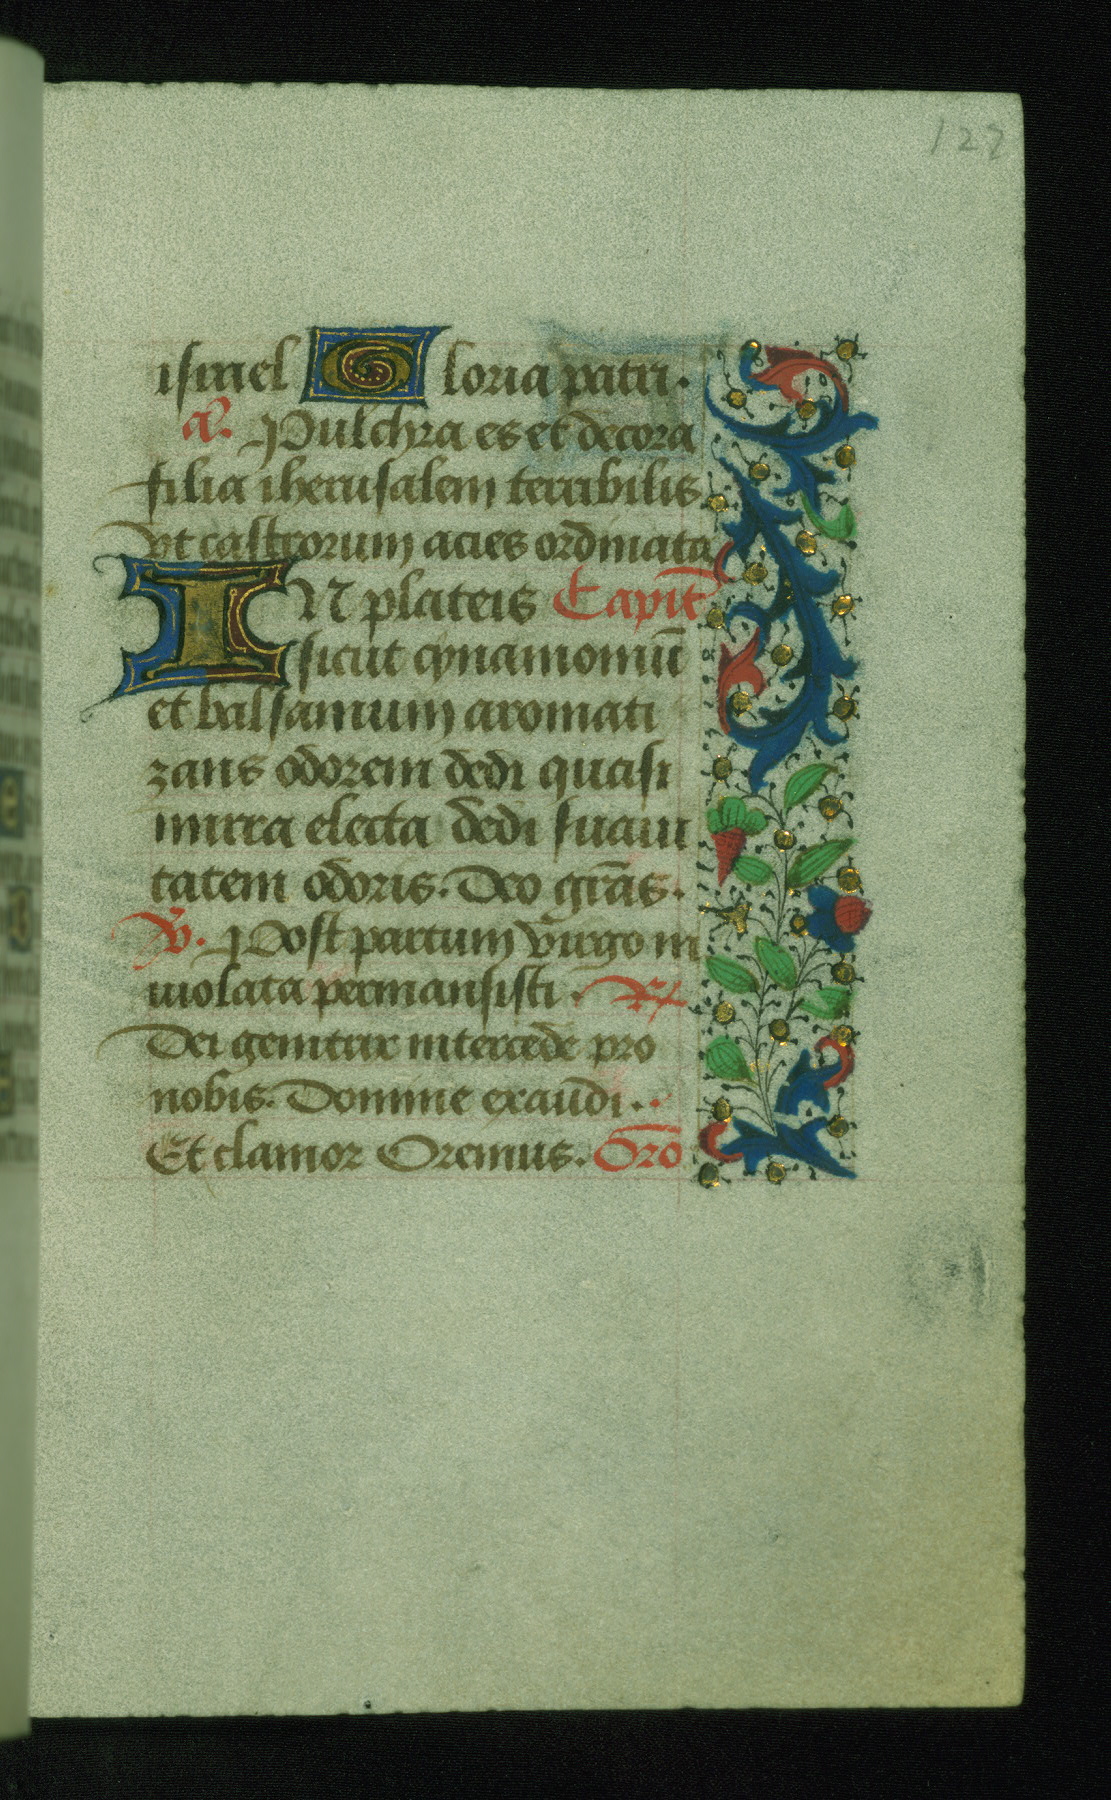 127
israel Gloria patri.
a. Pulchra es et decora
filia iherusalem terribilis
vt castrorum acies ordinata
IN plateis Capit̄
sicut cynamomū
et balsamum aromati
zans odorem dedi quasi
mirra electa dedi suaui
tatem odoris. Deo gr̄as.
V. Post partum virgo in
uiolata permansisti. R
Dei genitrix intercede pro
nobis. Domine exaudi.
Et clamor Oremus. Oro̅